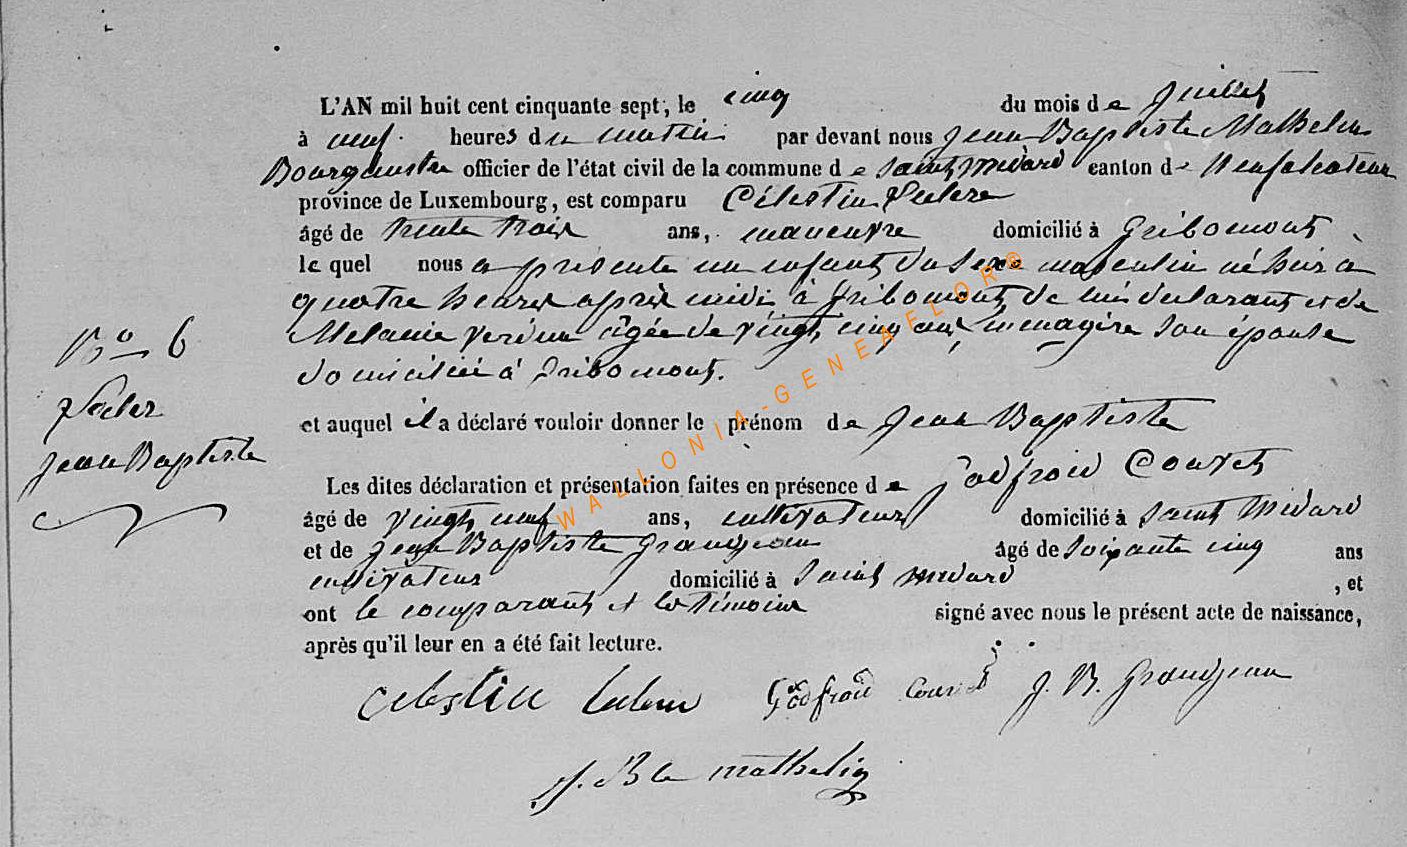 L'AN mil huit cent cinquante sept, le cinq du mois de Juillet
à neuf heures du matin par devant nous Jean Baptiste Mathelin
Bourgmestre officier de l'état civil de la commune de Saint Médard canton de Neufchateau
province de Luxembourg, est comparu Célestin
âgé de trente trois ans, manœuvre domicilié à Gribomont
le quel nous a présenté un enfant du sexe masculin né hier à
quatre heures après midi à Gribomont de lui déclarant et de
Melanie âgée de vingt cinq ans menagère son épouse
domiciliée à Gribomont.
et auquel il a déclaré vouloir donner le prénom de Jean Baptiste
Les dites déclaration et présentation faites en présence de Godfroid Couset
âgé de vingt neuf ans, cultivateur domicilié à Saint Médard
et de Jean Baptiste Grandjean âgé de soixante cinq ans
cultivateur domicilié à Saint Médard , et
ont le comparant et les témoins signé avec nous le présent acte de naissance,
après qu'il leur en a été fait lecture.
N° 6
Jean Baptiste
Celestin
Godfroid
J. B. Grandjean
J. Bte mathelin
WALLONIA-GENEAFLOR®